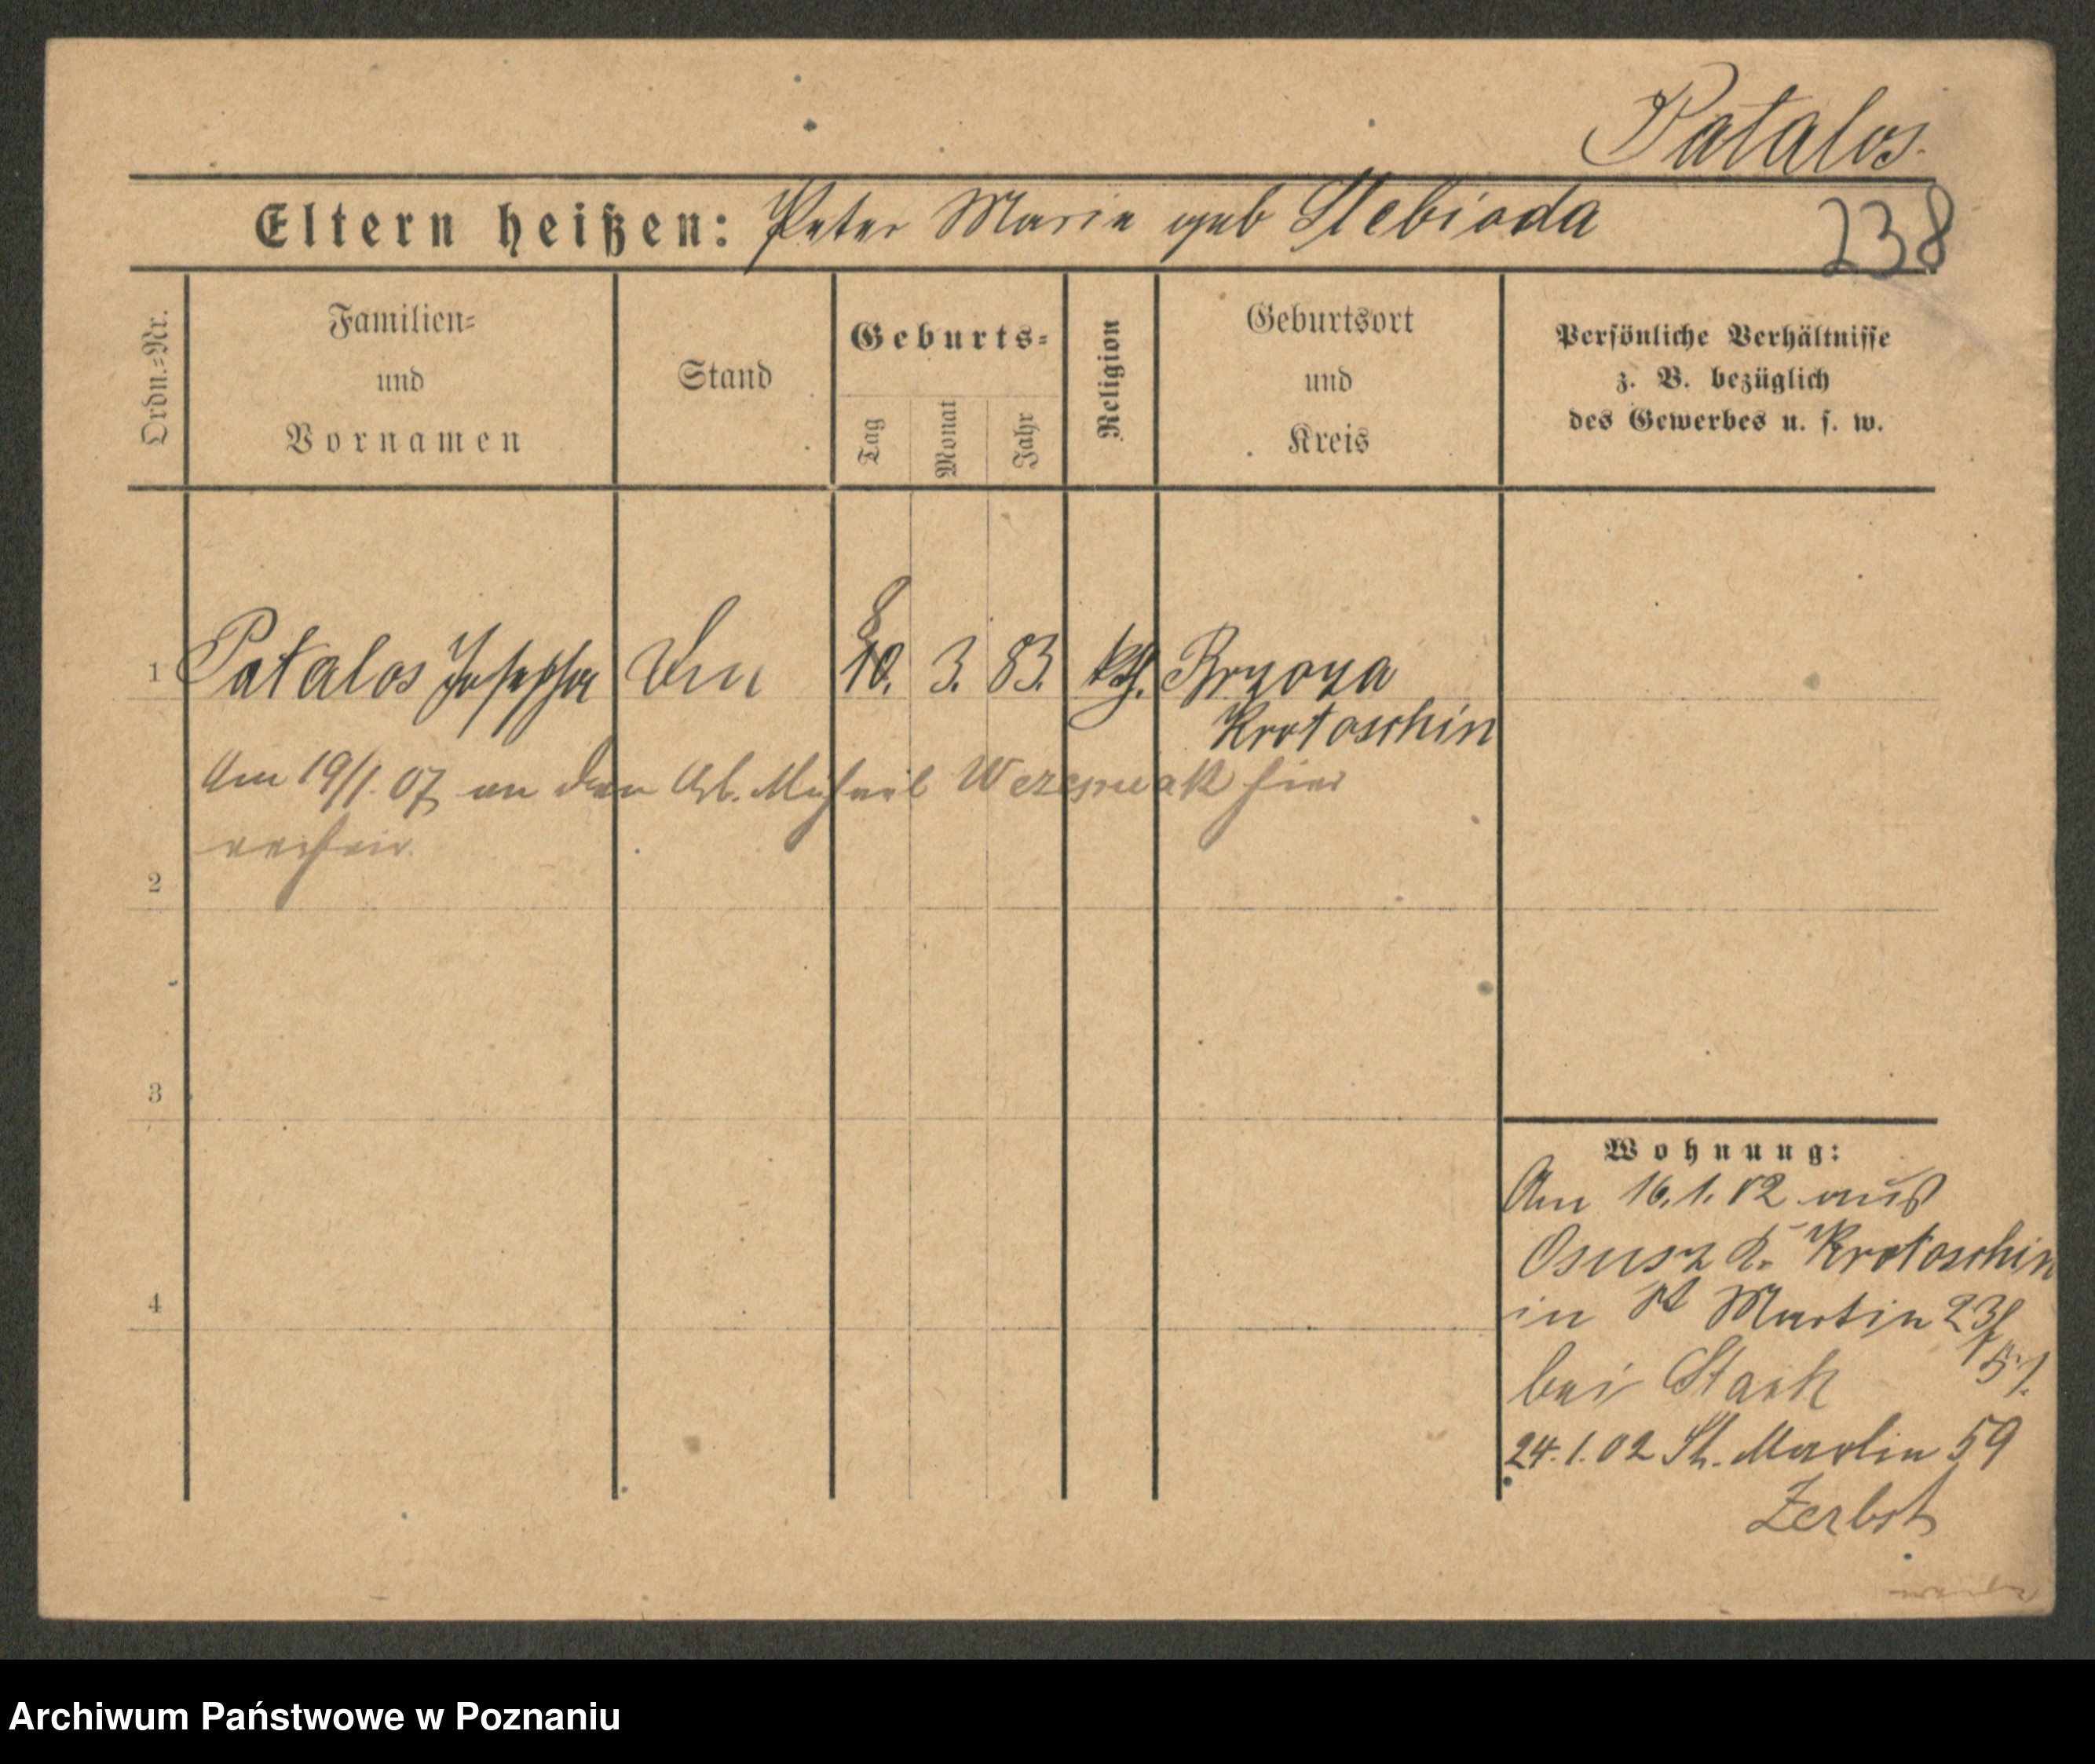 Patalos.
Eltern heißen: Peter Marie geb Stebioda
238
Ordn.=Nr.
Familien=
und
Vornamen
Stand
Geburts=
Tag
Monat
Jahr
Religion
Geburtsort
und
Kreis
Persönliche Verhältnisse
z. B. bezüglich
des Gewerbes u. s. w.
8
1 Patalos Josepha 10. 3. 83. kth. Brzoza
Krotoschin
Am 19/1. 07 an den Arb. Michael hier
verheir.
2
3
4
Wohnung:
Am 16.1.02 aus
Osusz K. Krotoschin
in St Martin 23
bei Stark
24.1.02 St. Martin 59
Zerbst
Archiwum Państwowe w Poznaniu